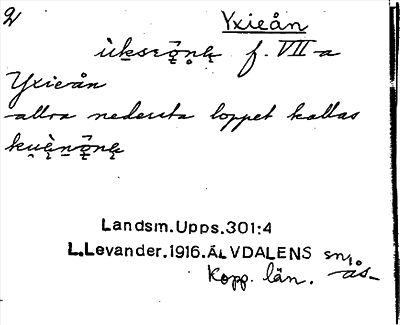 2 Yxieån
f. VII-a
Yxieån
allra nedersta loppet kallas
Landsm.Upps.301:4
L.Levander.1916.ÄLVDALENS sn,
Kopp. län. ås-